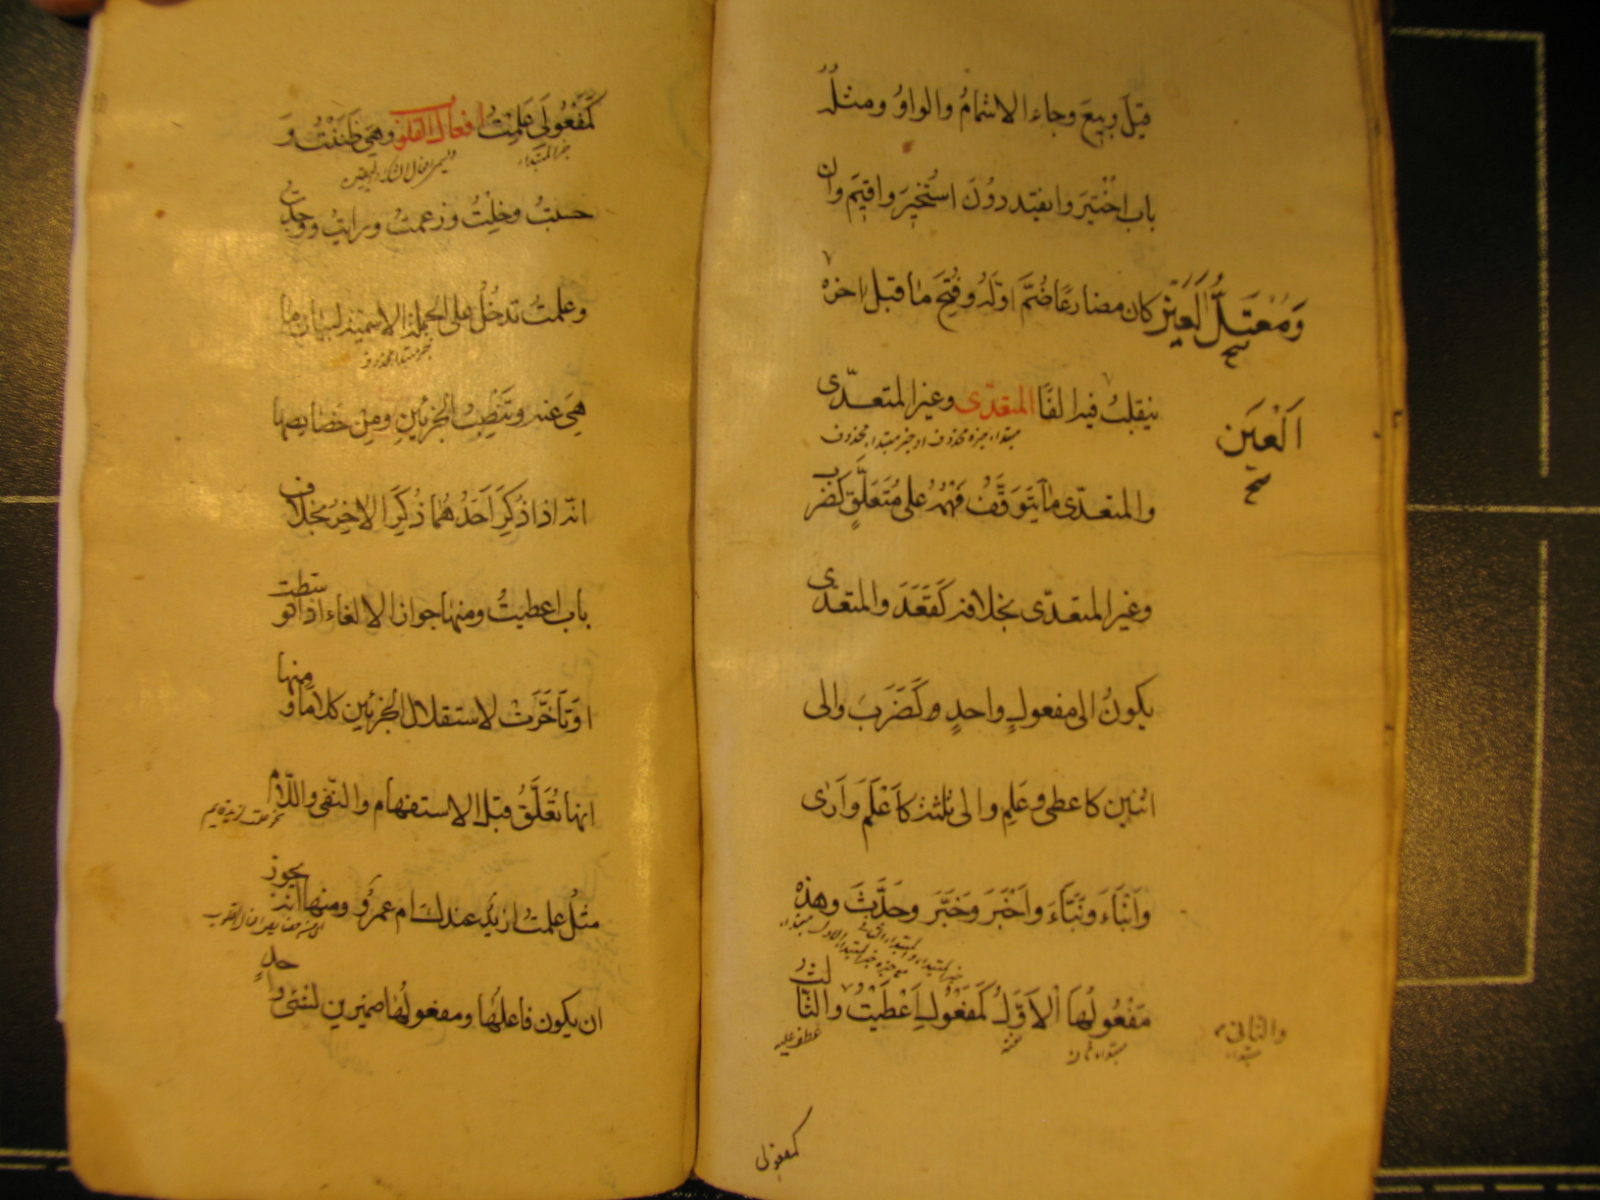 قيلَ وبيعَ وجاء الاشمامُ والواوُ ومثلُهُ
باب اختِيرَ وانقيد دُونَ استُخيرَ واقيمَ وان
كان مضارعًا ضُمَّ اوّلُه وفُتِحَ ما قبل اخره
وَمُعْتَلُّ العَيْنِ
صح
ينقلبُ فيه الفًا المتعدّى وغير المتعدّى
اَلْعَيْن
صح
مبتداء خبره محذوف او خبر مبتداء محذوف
والمتعدّى ما يتَوَقَّفُ فَهْمُهُ على مُتَعَلَّقٍ كضَرَب
وغير المتعدّى بخلافه كَقَعَدَ والمتعدّى
يكونُ الى مفعولٍ واحدٍ كَضَرَبَ والى
اثنين كاعطى وعَلِم والى ثلثة كاَعْلَمَ وَاَرٰى
وَاَنْبَاَءَ ونَبَّاَءَ واَخْبَرَ وخَبَّرَ وحَدَّثَ وهذه
مَفْعُولُهَا اْلاَوَّلُ كَمَفْعُولِ اَعْطَيْتُ والثالث
والثانى
مبتداء
مبتداء ثان
صفته
عطف عليه
كمفعولى
كَمَفْعُولَى عَلِمْتُ افعال القلوب وهى ظَنَنْتُ وَ
خبر المبتداء
حسبتُ وخِلْتُ وزعمتُ ورايتُ ووجدتُ
وعلمتُ تدخُلُ على الجملة الاسميّة لبيان ما
خبر مبتداء محذوف
هِىَ عنه وتَنْصِبُ الجزئينِ ومِنْ خصايصها
انّه اذا ذُكِرَ اَحَدُهُما ذُكِرَ الاخِرُ بخلاف
باب اعطيتُ ومنها جواز الالغاء اذا توسّطت
اوتَاَخَّرَتْ لاستقلال الجزئين كلامًا ومنها
انها تُعَلَّقُ قبل الاستفهام والنفى واللّام
مثلُ علمتُ ازيدٌ عندك ام عمرٌو ومنها انه يجوز
ان يكون فاعلُها ومفعولُها ضميرين لشئى واحدٍ